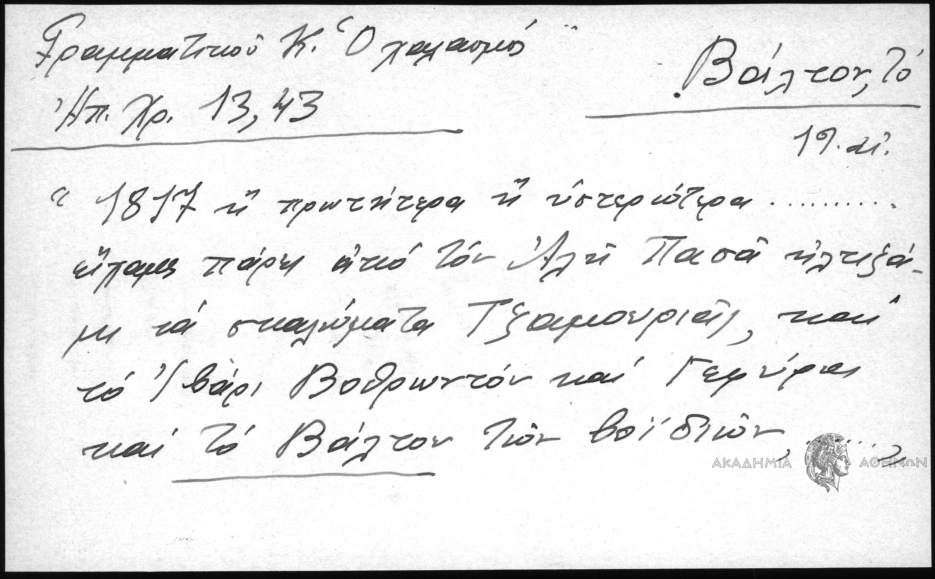 Γραμματικοῦ Κ. Ὁ χαλασμός
Ἠπ. Χρ. 13, 43
Βάλτον, τό
19. αἰ.
"1817 ἢ πρωτήτερα ἢ ὑστεριώτερα ..........
εἴχαμε πάρει ἀπό τόν Ἀλῆ Πασᾶ ἠλτιζά-
μι τά σκαλώματα Τζαμουριᾶς, καί
τό Ἰβάρι Βοθρωντόν καί Γεφύρας
καί τό Βάλτον τῶν βοϊδιῶν, ......,
ΑΚΑΔΗΜΙΑ ΑΘΗΝΩΝ